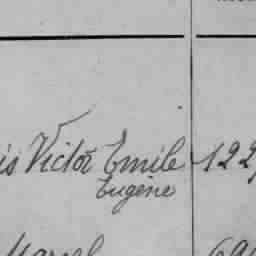 is Victor Emile 122
Eugène
Marcel